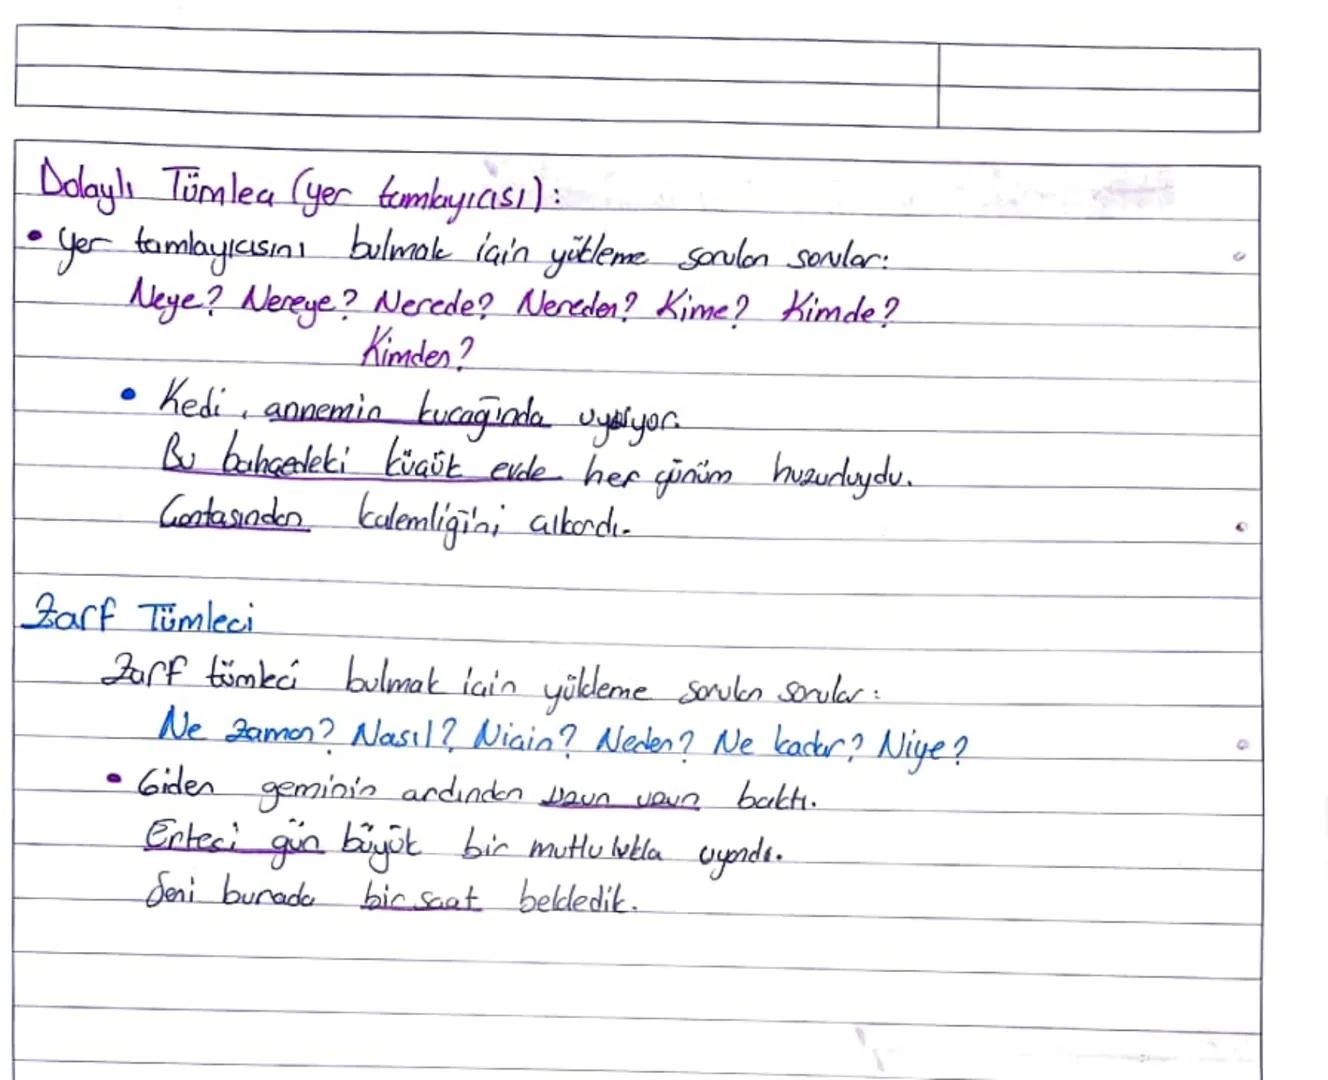 Dolaylı Tümleç (yer tamlayıcısı):
• Yer tamlayıcısını bulmak için yükleme sorulan sorular:
Neye? Nereye? Nerede? Nereden? Kime? Kimde?
Kimden?
• Kedi, annemin kucağında uyuyor.
Bu bahçedeki küçük evde her günüm huzurluydu.
Çantasından kalemliğini çıkardı.
Zarf Tümleci
Zarf tümleci bulmak için yükleme sorulan sorular:
Ne zaman? Nasıl? Niçin? Neden? Ne kadar? Niye?
• Giden geminin ardından uzun uzun baktı.
Ertesi gün büyük bir mutlulukla uyandı.
Seni burada bir saat bekledik.